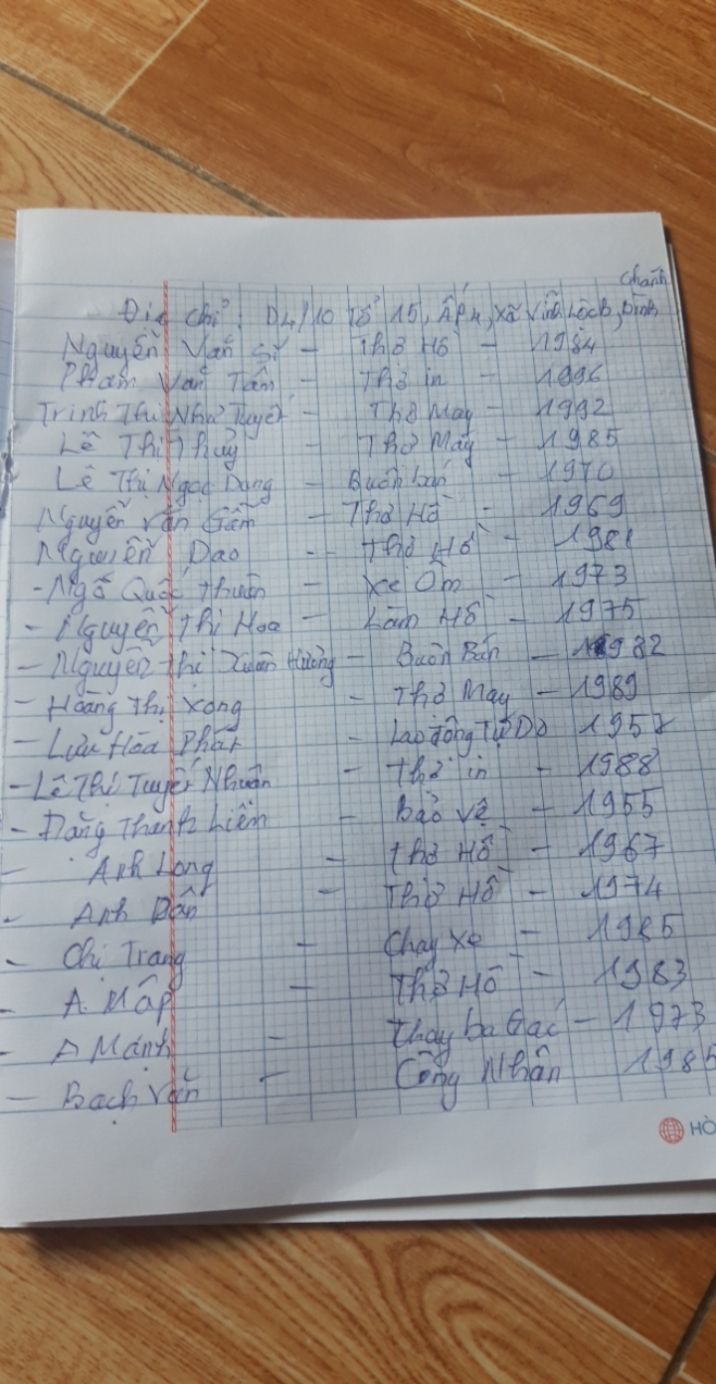 Chánh
Địa chỉ: D4/10 Tổ 15, Ấp 4, xã Vĩnh Lộc B, Bình
Nguyễn Văn Sĩ - Thợ Hồ - 1984
Phạm Văn Tâm - Thợ in - 1996
Trinh Thị Như Tuyết - Thợ May - 1992
Lê Thị Thuỷ - Thợ Máy - 1985
Lê Thị Ngọc Dung - Buôn bán - 1970
Nguyễn Văn Gấm - Thợ Hồ - 1969
Nguyễn Dao - Thợ Hồ - 1981
- Ngô Quốc Thuận - Xe Ôm - 1973
- Nguyễn Thị Hoa - Làm Hồ - 1975
- Nguyễn Thị Xuân Hường - Buôn Bán - 1982
- Hoàng Thị Xong - Thợ May - 1989
- Lưu Hòa Phát - Lao động Tự Do 1957
- Lê Thị Tuyết Nhuẫn - Thợ in - 1988
- Đặng Thanh Liêm - Bảo Vệ - 1955
- Anh Long - Thợ Hồ - 1967
- Anh - Thợ Hồ - 1974
- Chị Trang - Chạy Xe - 1985
- A. Mập - Thợ Hồ - 1983
- A Mánh - Chạy ba Gác - 1973
- Bạch Vân - Công Nhân 1985
HÒ